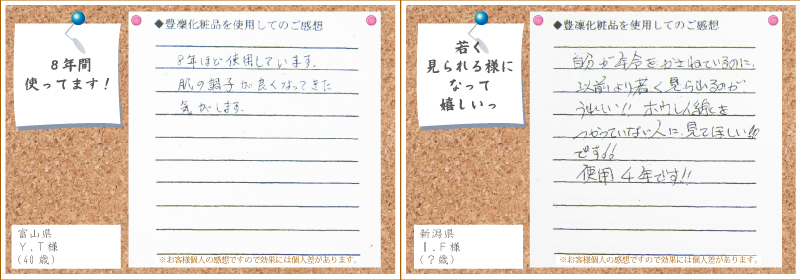 8年間
使ってます！
◆豊凜化粧品を使用してのご感想
8年ほど使用しています。
肌の調子が良くなってきた
気がします。
富山県
Ｙ．Ｔ様
(40歳)
※お客様個人の感想ですので効果には個人差があります。
若く
見られる様に
なって
嬉しいっ
◆豊凜化粧品を使用してのご感想
自分が年令をかさねているのに、
以前より若く見られるのが
うれしい!! ホウレイ線を
つかっていない人に、見てほしい!!
です
使用 4年です!!
新潟県
Ｉ．Ｆ様
(？歳)
※お客様個人の感想ですので効果には個人差があります。